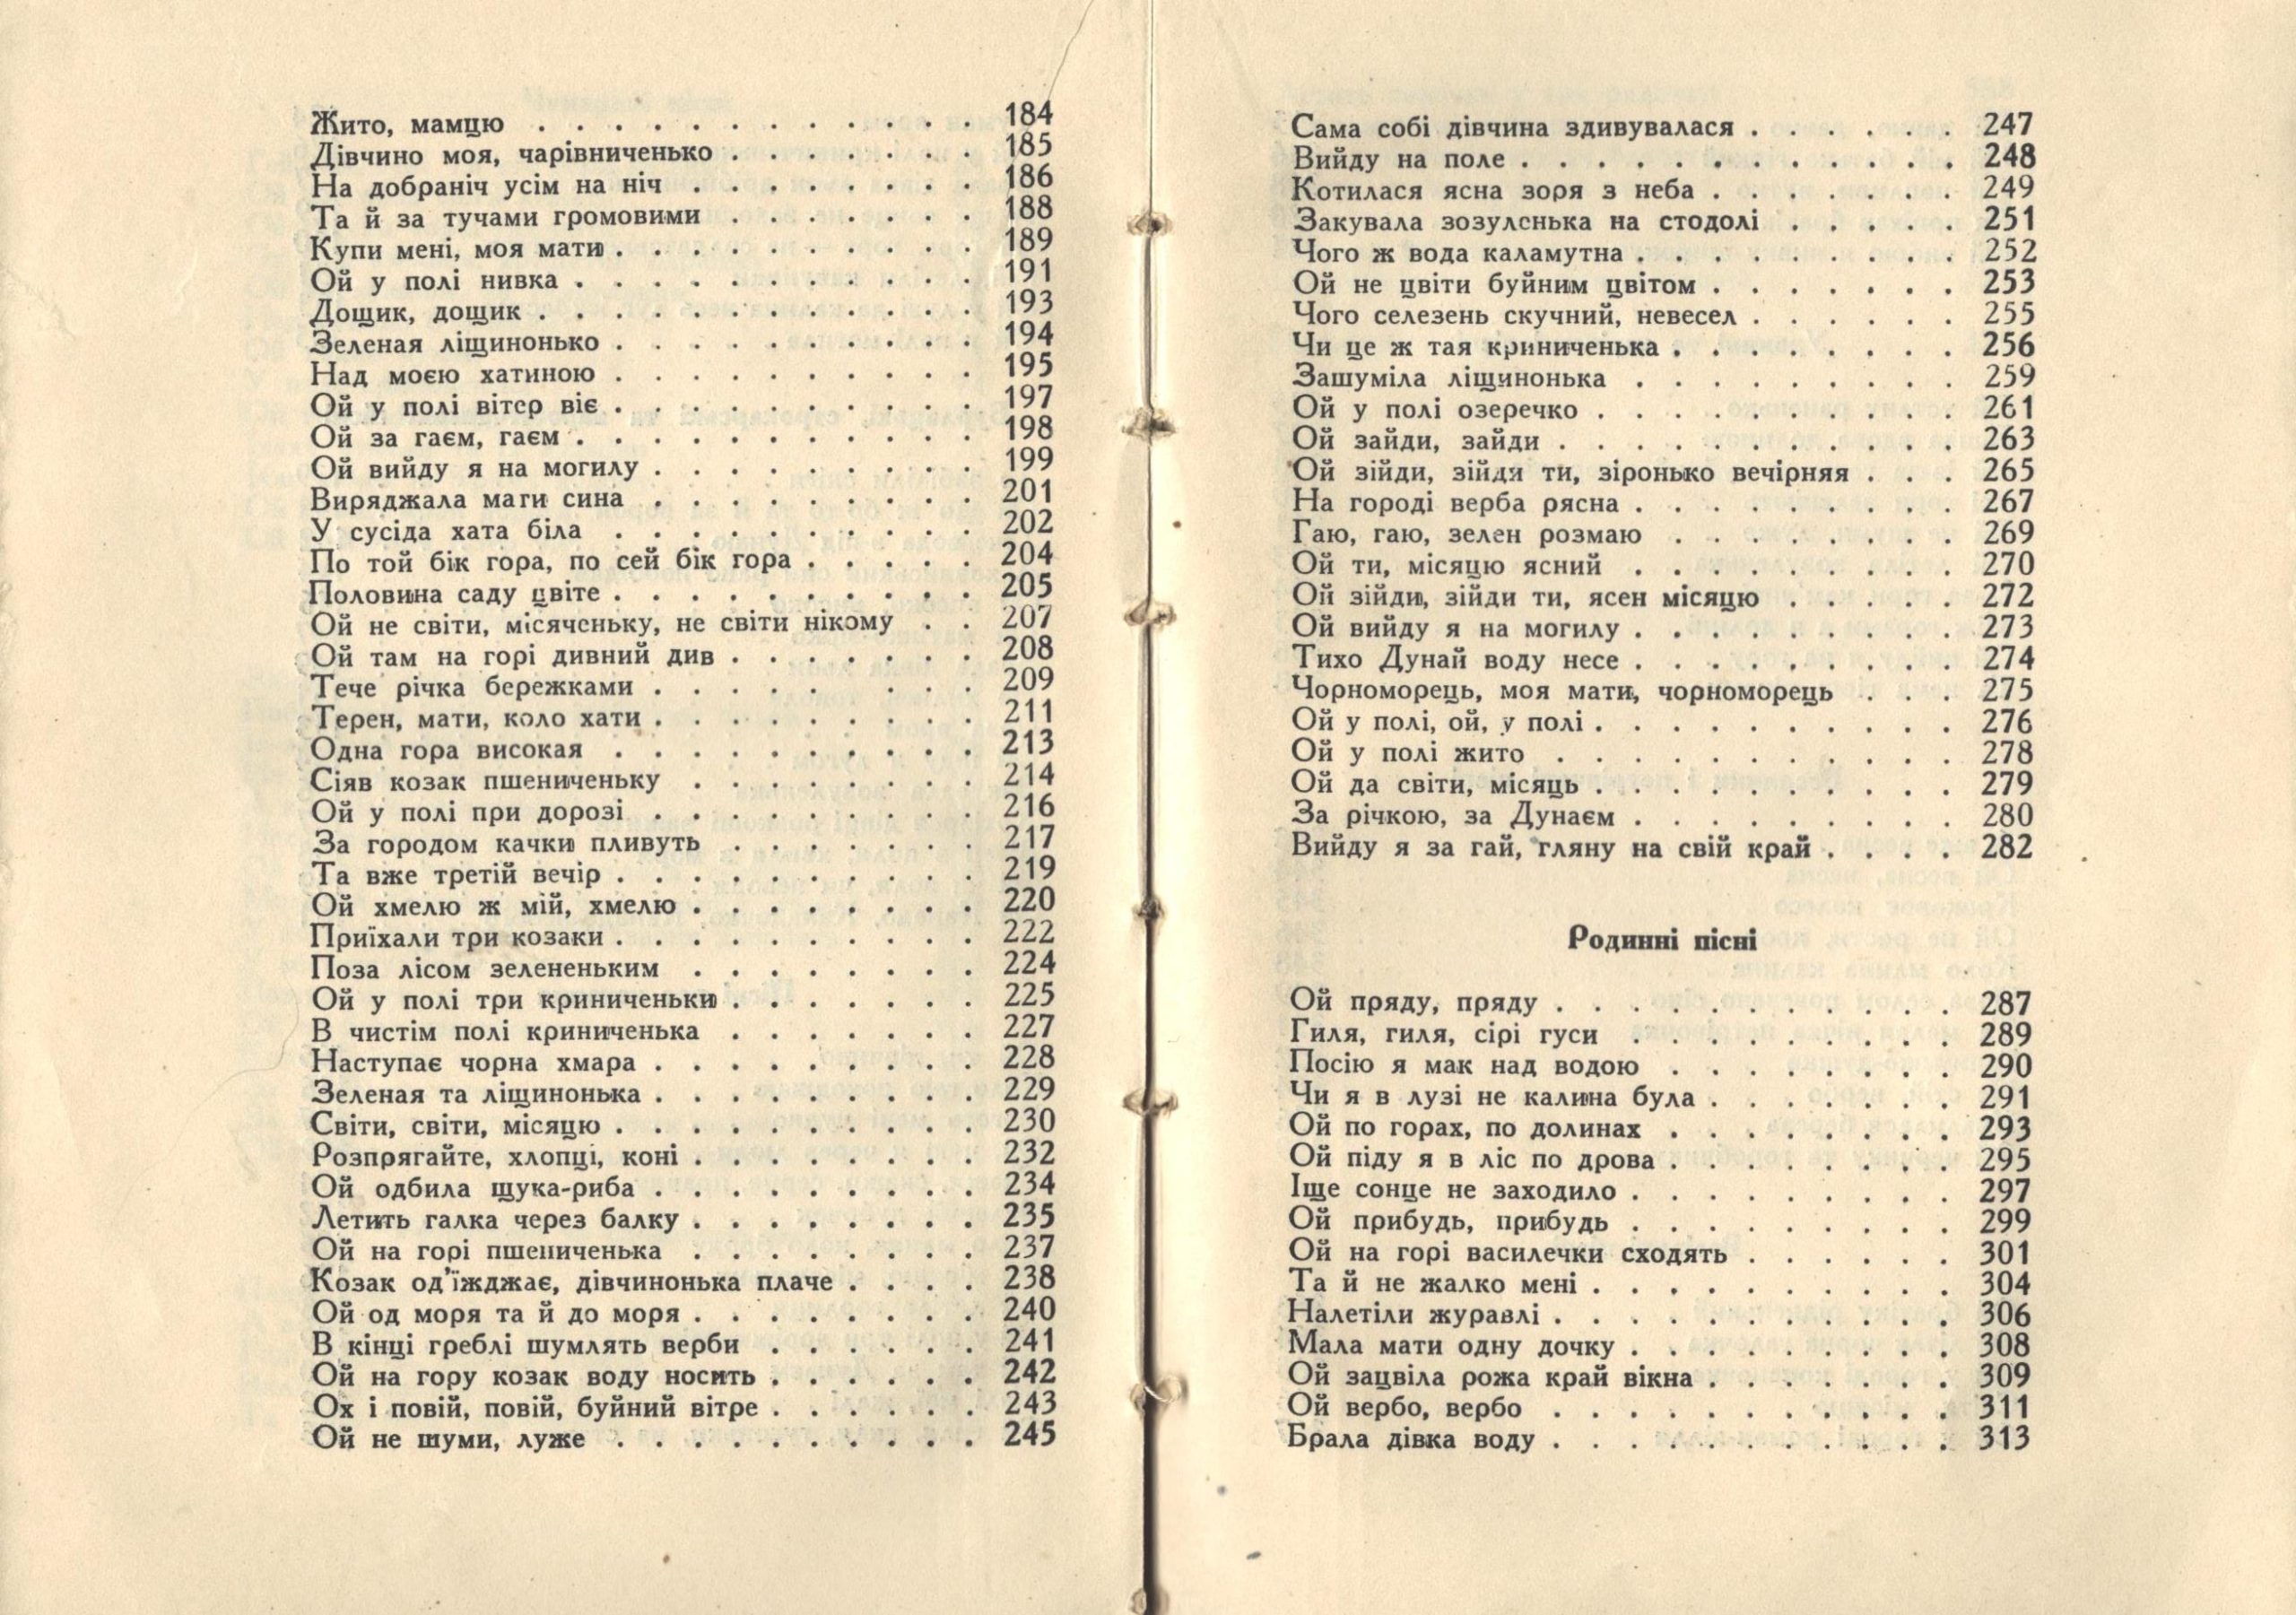 Жито, мамцю . . . . . . . . . . . . 184
Дівчино моя, чарівниченько . . . . . . . 185
На добраніч усім на ніч . . . . . . . . 186
Та й за тучами громовими . . . . . . . 188
Купи мені, моя мати . . . . . . . . . . 189
Ой у полі нивка . . . . . . . . . . . 191
Дощик, дощик . . . . . . . . . . . . 193
Зеленая ліщинонько . . . . . . . . . . 194
Над моєю хатиною . . . . . . . . . . 195
Ой у полі вітер віє . . . . . . . . . . 197
Ой за гаєм, гаєм . . . . . . . . . . . 198
Ой вийду я на могилу . . . . . . . . . 199
Виряджала мати сина . . . . . . . . . 201
У сусіда хата біла . . . . . . . . . . 202
По той бік гора, по сей бік гора . . . . . 204
Половина саду цвіте . . . . . . . . . . 205
Ой не світи, місяченьку, не світи нікому . . 207
Ой там на горі дивний див . . . . . . . 208
Тече річка бережками . . . . . . . . . 209
Терен, мати, коло хати . . . . . . . . . 211
Одна гора високая . . . . . . . . . . 213
Сіяв козак пшениченьку . . . . . . . . 214
Ой у полі при дорозі . . . . . . . . . 216
За городом качки пливуть . . . . . . . 217
Та вже третій вечір . . . . . . . . . . 219
Ой хмелю ж мій, хмелю . . . . . . . . 220
Приїхали три козаки . . . . . . . . . . 222
Поза лісом зелененьким . . . . . . . . 224
Ой у полі три криниченьки . . . . . . . 225
В чистім полі криниченька . . . . . . . 227
Наступає чорна хмара . . . . . . . . . 228
Зеленая та ліщинонька . . . . . . . . . 229
Світи, світи, місяцю . . . . . . . . . . 230
Розпрягайте, хлопці, коні . . . . . . . . 232
Ой одбила щука-риба . . . . . . . . . 234
Летить галка через балку . . . . . . . . 235
Ой на горі пшениченька . . . . . . . . 237
Козак од'їжджає, дівчинонька плаче . . . . 238
Ой од моря та й до моря . . . . . . . . 240
В кінці греблі шумлять верби . . . . . . 241
Ой на гору козак воду носить . . . . . . 242
Ох і повій, повій, буйний вітре . . . . . . 243
Ой не шуми, луже . . . . . . . . . . 245
Сама собі дівчина здивувалася . . . . . . 247
Вийду на поле . . . . . . . . . . . . 248
Котилася ясна зоря з неба . . . . . . . 249
Закувала зозуленька на стодолі . . . . . 251
Чого ж вода каламутна . . . . . . . . . 252
Ой не цвіти буйним цвітом . . . . . . . 253
Чого селезень скучний, невесел . . . . . . 255
Чи це ж тая криниченька . . . . . . . . 256
Зашуміла ліщинонька . . . . . . . . . 259
Ой у полі озеречко . . . . . . . . . . 261
Ой зайди, зайди . . . . . . . . . . . 263
Ой зійди, зійди ти, зіронько вечірняя . . . 265
На городі верба рясна . . . . . . . . . 267
Гаю, гаю, зелен розмаю . . . . . . . . 269
Ой ти, місяцю ясний . . . . . . . . . 270
Ой зійди, зійди ти, ясен місяцю . . . . . 272
Ой вийду я на могилу . . . . . . . . . 273
Тихо Дунай воду несе . . . . . . . . . 274
Чорноморець, моя мати, чорноморець . . . 275
Ой у полі, ой, у полі . . . . . . . . . . 276
Ой у полі жито . . . . . . . . . . . 278
Ой да світи, місяць . . . . . . . . . . 279
За річкою, за Дунаєм . . . . . . . . . 280
Вийду я за гай, гляну на свій край . . . . 282
Родинні пісні
Ой пряду, пряду . . . . . . . . . . . 287
Гиля, гиля, сірі гуси . . . . . . . . . 289
Посію я мак над водою . . . . . . . . 290
Чи я в лузі не калина була . . . . . . . 291
Ой по горах, по долинах . . . . . . . . 293
Ой піду я в ліс по дрова . . . . . . . . 295
Іще сонце не заходило . . . . . . . . . 297
Ой прибудь, прибудь . . . . . . . . . 299
Ой на горі василечки сходять . . . . . . 301
Та й не жалко мені . . . . . . . . . . 304
Налетіли журавлі . . . . . . . . . . . 306
Мала мати одну дочку . . . . . . . . . 308
Ой зацвіла рожа край вікна . . . . . . . 309
Ой вербо, вербо . . . . . . . . . . . 311
Брала дівка воду . . . . . . . . . . . 313